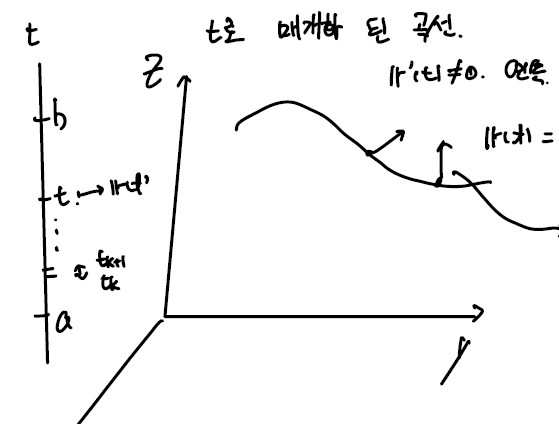 t
t로 매개화 된 곡선.
Z
|r'(t)≠0. 연속.
b
|r(t) =
t. → |r(t)'
t_{k+1}
t_k
a
y